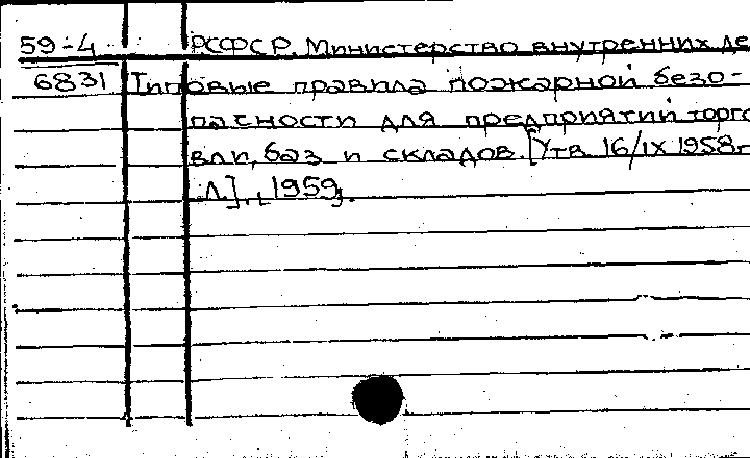 59-4 РСФСР. Министерство внутренних де
6831 Типовые правила пожарной безо-
пасности для предприятий торго
вли, баз и складов. [Утв. 16/IX 1958г.
Л.], [1959].